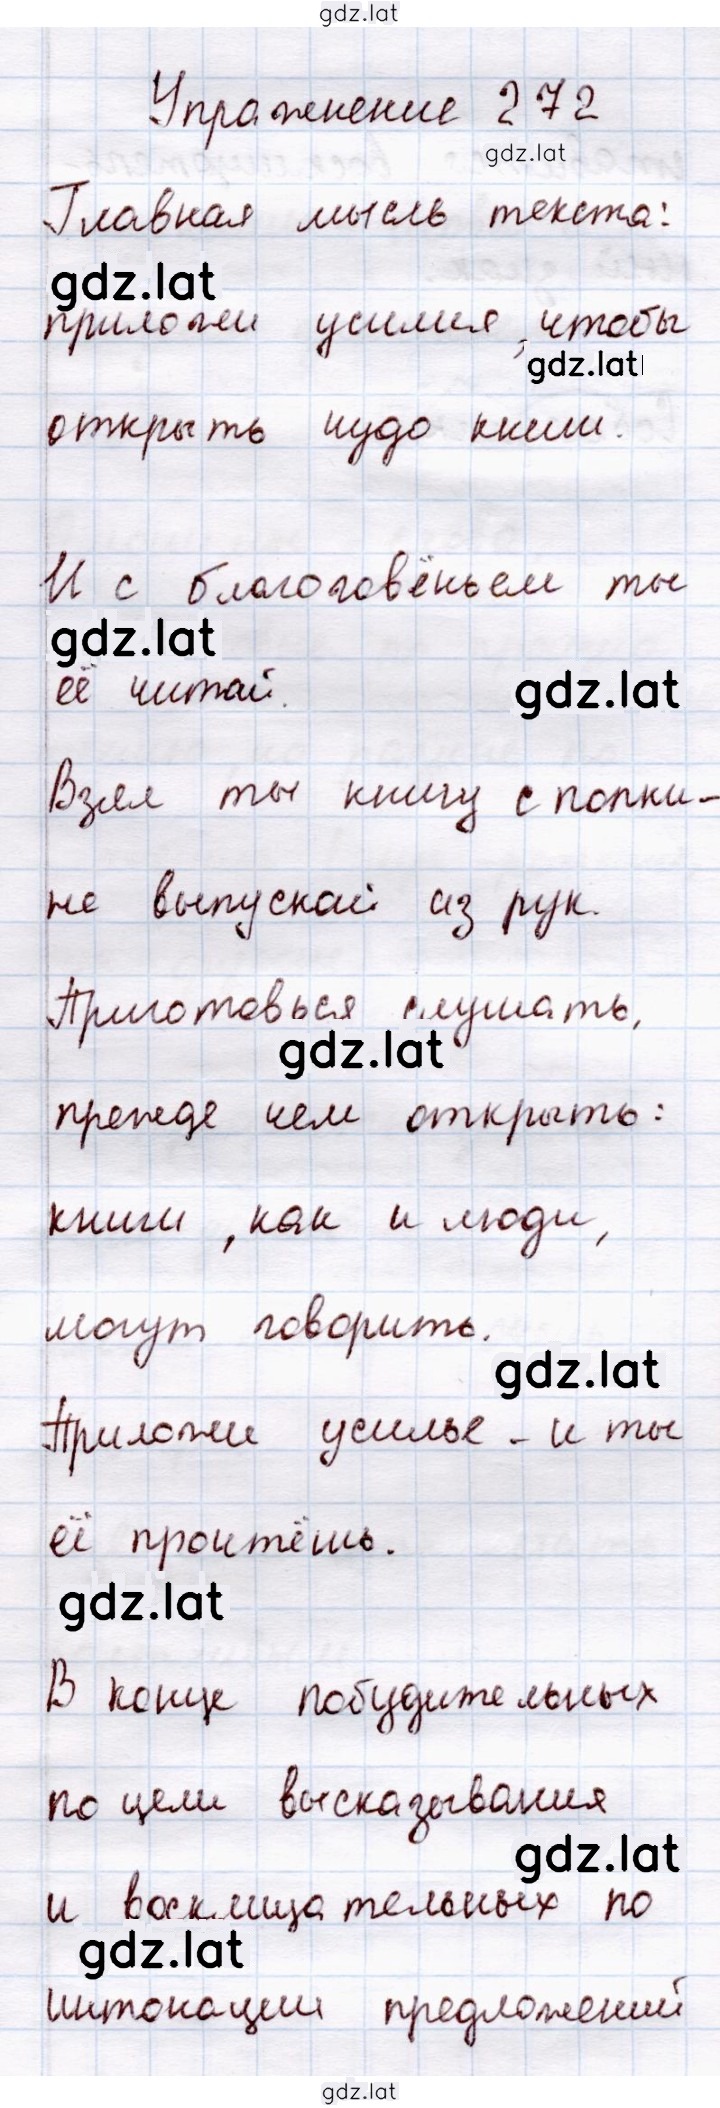 gdz.lat
Упражнение 272
gdz.lat
Главная мысль текста:
gdz.lat
приложи усилия, чтобы
gdz.lat
открыть чудо книги.
И с благоговёньем ты
gdz.lat
её читай.
gdz.lat
Взял ты книгу с полки -
не выпускай из рук.
Приготовься слушать,
gdz.lat
прежде чем открыть:
книги, как и люди,
могут говорить.
gdz.lat
Приложи усилье - и ты
её прочтёшь.
gdz.lat
В конце побудительных
по цели высказывания
gdz.lat
и восклицательных по
gdz.lat
интонации предложений
gdz.lat